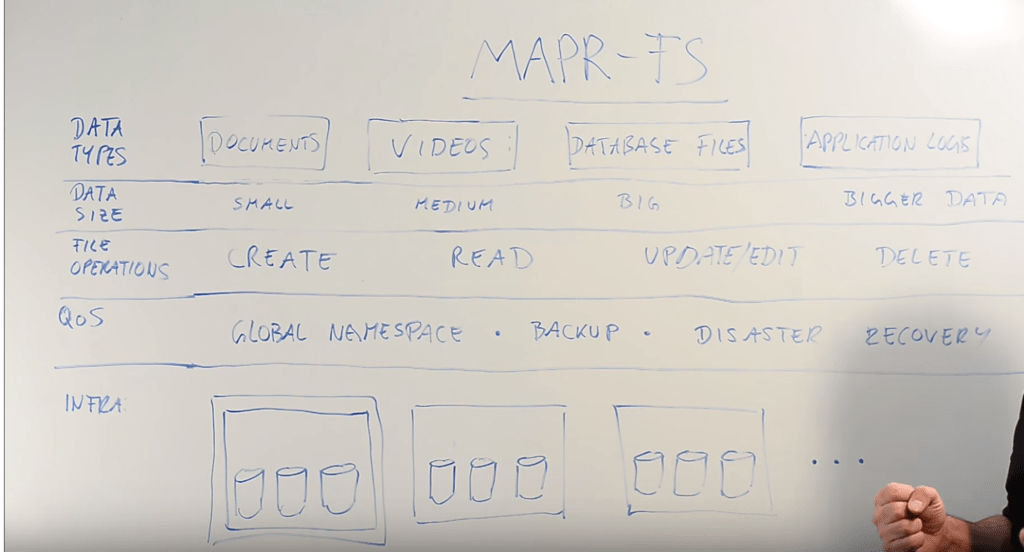 MAPR-FS
DATA TYPES DOCUMENTS VIDEOS DATABASE FILES APPLICATION LOGS
DATA SIZE SMALL MEDIUM BIG BIGGER DATA
FILE OPERATIONS CREATE READ UPDATE/EDIT DELETE
QoS GLOBAL NAMESPACE • BACKUP • DISASTER RECOVERY
INFRA
...